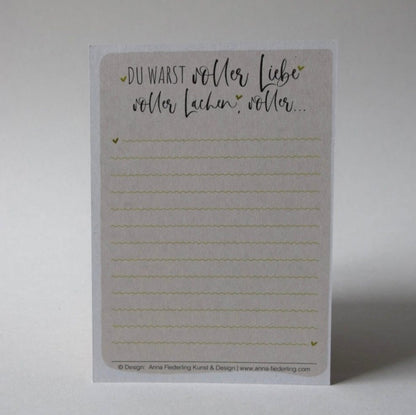 DU WARST voller Liebe
voller Lachen, voller...
© Design: Anna Fiederling Kunst & Design | www.anna-fiederling.com